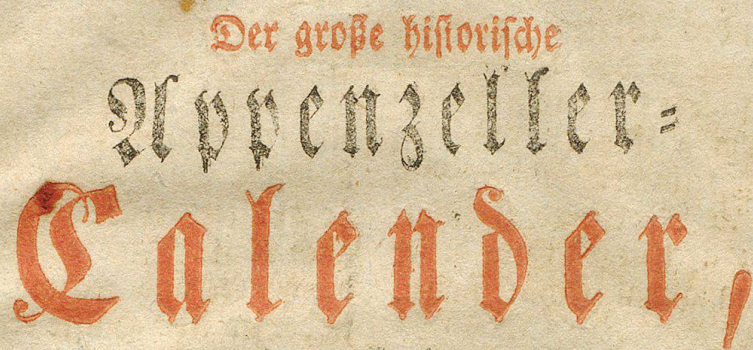 Der große hiſtoriſche
Appenzeller=
Calender,